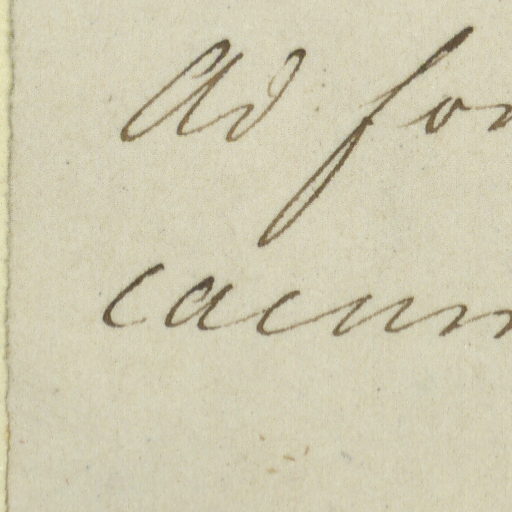 Ad fon
cacum